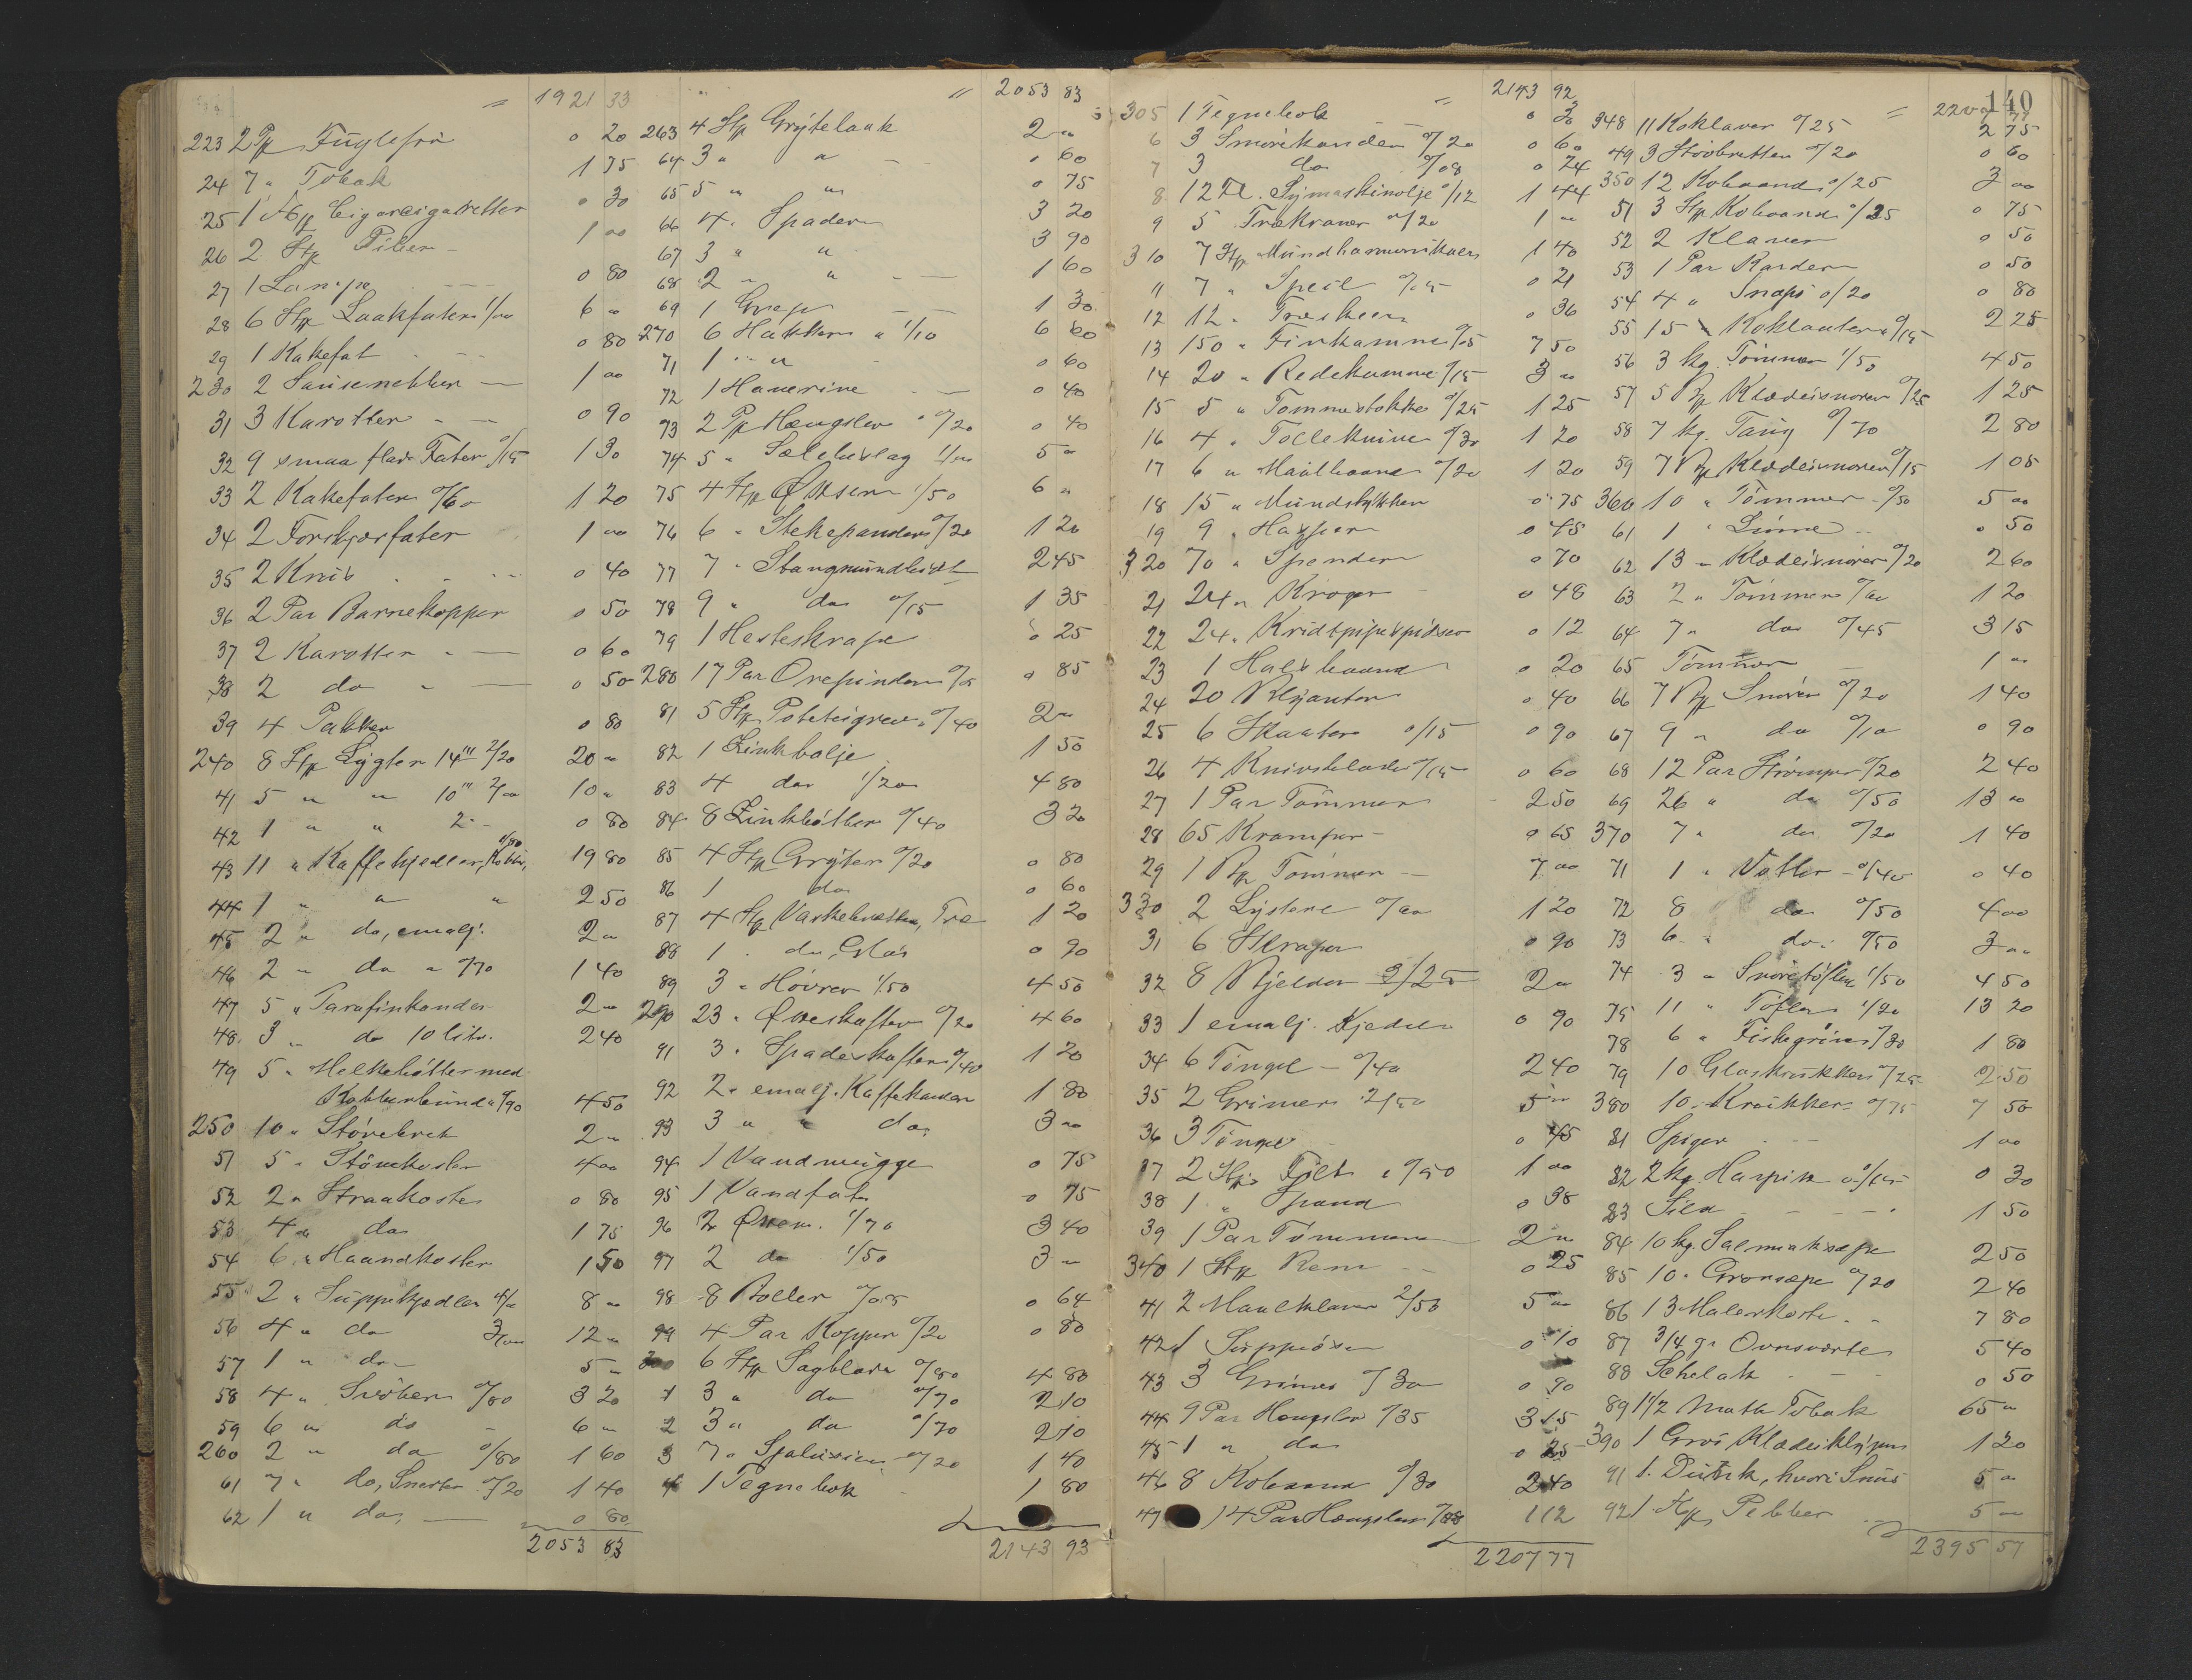 = 1921 33
223 2 Pk Fuglefrö 0 20
24 7 " Tobak 1 75
25 1 Cigarcigaretter 0 30
26 2 Stk Piber - 1 00
27 1 Lampe 0 80
28 6 Stk Laakfater 1/00 6 "
29 1 Kakefat 0 80
230 2 Sausenebber — 1 00
31 3 Karotter 0 90
32 9 smaa flade Fater 0/15 1 30
33 2 Kakefater 0/60 1 20
34 2 Forskjærfater 1 00
35 2 Kniv 0 40
36 2 Par Barnekopper 0 50
37 2 Karotter " — 0 60
38 2 do " — 0 50
39 4 Pakker 0 80
240 8 Stk Lygter 14''' 2/20 20 "
41 5 " " 10''' 2/00 10 "
42 1 " " 2 - 0 80
43 11 " Kaffekjedler, Kobber, 1/80 19 80
44 1 " " " 2 50
45 2 " do, emalj. 2 "
46 2 " do " 0/70 1 40
47 5 " Parafinkander 2 "
48 3 " do 10 litr. 2 40
49 5 " Melkebötter med
Kobberbund " 0/90 4 50
250 10 " Störebret 2 "
51 5 " Stövekoster 4 00
52 2 " Straakoster 0 80
53 4 " do 1 75
54 6 " Haandkoster 1 50
55 2 " Suppekjedler 4/00 8 "
56 4 " do 3/00 12 "
57 1 " do - 5 "
58 4 " Svöber 0/80 3 20
59 6 " do - 6 "
260 2 " do 0/80 1 60
61 7 " do, Snerter 0/20 1 40
62 1 " do, — 0 80
2053 83
" 2053 83
263 4 Stk Grytelaak 2 "
64 3 " " - 0 60
65 5 " " 0 75
66 4 " Spader 3 20
67 3 " " 3 90
68 2 " " - 1 60
69 1 Greip 1 30
270 6 Hakker " 1/10 6 60
71 1 " " 0 60
72 1 Haverive 0 40
73 2 Pk Hængsler " 0/20 0 40
74 5 " Salebeslag 1/00 5 "
75 4 Stk Økser 1/50 6 "
76 6 " Stekepander 0/20 1 20
77 7 " Stangmundbidt 2 45
78 9 " do 0/15 1 35
79 1 Hesteskrape 0 25
280 17 Par Orepinder 0/05 0 85
81 5 Stk Potetsigrev " 0/40 2 "
82 1 Zinkbalje 1 50
83 4 do 1/20 4 80
84 8 Zinkbötter 0/40 3 20
85 4 Stk Gryter 0/20 0 80
86 1 do 0 60
87 4 Stk Vaskebrætter, Træ 1 20
88 1 " do, Glas 0 90
89 3 " Hövrer 1/50 4 50
290 23 " Økseskafter 0/20 4 60
91 3 " Spadeskafter 0/40 1 20
92 2 " emalj. Kaffekander 1 80
93 3 " " do 3 00
94 1 Vandmugge 0 75
95 1 Vandfat 0 75
96 2 Øxer 1/70 3 40
97 2 do 1/50 3 "
98 8 Boller 0/08 0 64
99 4 Par Kopper 0/20 0 80
300 6 Stk Sagblade 0/80 4 80
1 3 " do 0/70 2 10
2 3 " do 0/70 2 10
3 7 " Sjalusien 0/20 1 40
4 1 Tegnebok 1 80
2143 93
= 2143 92
305 1 Tegnebok
6 3 Smörekander 0/20 0 60
7 3 do 0/08 0 24
8 12 Fl. Symaskinolje 0/12 1 44
9 5 Trækraner 0/20 1 "
310 7 Stk Mundharmonikaer 1 40
11 7 " Speil 0 21
12 12 " Træskeer 0 36
13 150 " Finkamme 0/05 7 50
14 20 " Redekamme 0/15 3 "
15 5 " Tommestokke 0/25 1 25
16 4 " Tollekniver 0/30 1 20
17 6 " Maalbaand 0/20 1 20
18 15 " Mundstykker 0 75
19 9 " Hasper 0 45
320 70 " Spender 0 70
21 24 " Kroger 0 48
22 24 " Kridtpipespidser 0 12
23 1 Halsbaand 0 20
24 20 Blyanter 0 40
25 6 Skaater 0/15 0 90
26 4 Knivsblade 0/15 0 60
27 1 Par Tömmer 2 50
28 65 Kramper - 0 65
29 1 Pk Tömmer - 7 00
330 2 Lystere 0/60 1 20
31 6 Skraper 0 90
32 8 Bjelder 0/25 2 "
33 1 emalj. Kjedel 0 90
34 6 Töngel - 0/40 2 40
35 2 Grimer 2/50 5 "
36 3 Töngel 0 45
37 2 Stk Filt " 0/50 1 00
38 1 " Spand 0 38
39 1 Par Tömmer 2 "
340 1 Stk Rem 0 25
41 2 Maulklaver 2/50 5 00
42 1 Suppeöse 0 10
43 3 Grimer 0/30 0 90
44 9 Par Hengsler 0/35 3 15
45 1 " do 0 25
46 8 Kobaand 0/30 2 40
47 14 Par Hængsler 0/08 1 12
2207 77
= 2207
140
348 11 Koklaver 0/25 2 75
49 3 Stövbretter 0/20 0 60
350 12 Kobaand 0/25 3 00
51 3 Stk Kobaand 0/25 0 75
52 2 Klaver 0 50
53 1 Par Karder 0 50
54 4 " Snaps 0/20 0 80
55 15 " Koklaver 0/15 2 25
56 3 kg. Tömmer 1/50 4 50
57 5 Pk Klædessnorer 0/25 1 25
58 7 kg. Taug 0/40 2 80
59 7 Pk Klædessnorer 0/15 1 05
360 10 " Tömmer 0/50 5 00
61 1 " Linne 0 50
62 13 " Klædessnorer 0/20 2 60
63 2 " Tömmer 0/60 1 20
64 7 " do 0/45 3 15
65 Tömmer 1 "
66 7 Pk Snörer 0/20 1 40
67 9 " do 0/10 0 90
68 12 Par Strömper 0/20 2 40
69 26 " do 0/50 13 00
370 7 " do 0/20 1 40
71 1 " Votter - 0/40 0 40
72 8 do 0/50 4 00
73 6 " do 0/50 3 00
74 3 " Snöretöfler 1/50 4 50
75 11 " Töfler 1/20 13 20
78 6 " Fiskegriner 0/30 1 80
79 10 Glaskrukker 0/25 2 50
380 10 " Krukker 0/75 7 50
81 Spiger 1 00
82 2 kg. Harpix 0/15 0 30
83 Sild 1 50
84 10 kg. Salmiaksæpe 2 50
85 10 " Grønsæpe 2 40
86 13 Malerkoste 7 80
87 3/4 gr Ovnsværte 5 40
88 Schelak 0 50
89 1 1/2 Matte Tobak 65 "
390 1 Gros Klædesklyper 1 20
91 1 Dunk, hvori Snus 5 "
92 1 Pk Pebber 5 "
2395 57